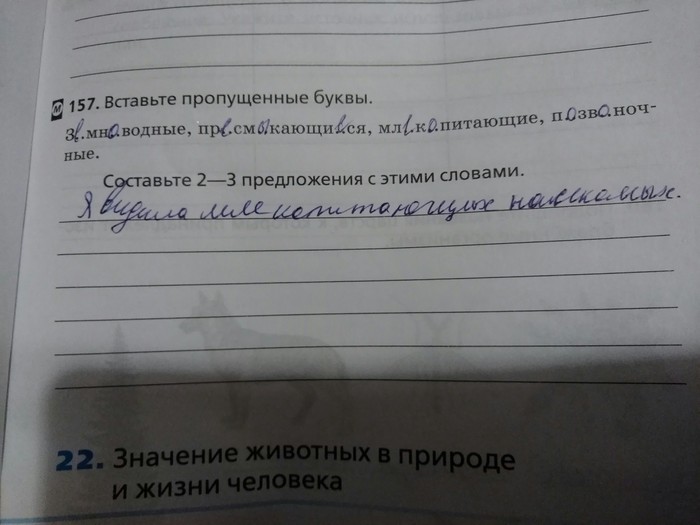 157. Вставьте пропущенные буквы.
Зе.мно.водные, пре.смы.кающие.ся, мле.ко.питающие, по.зво.ноч-
ные.
Составьте 2—3 предложения с этими словами.
Я видила млекопитающих насикомых.
22. Значение животных в природе
и жизни человека